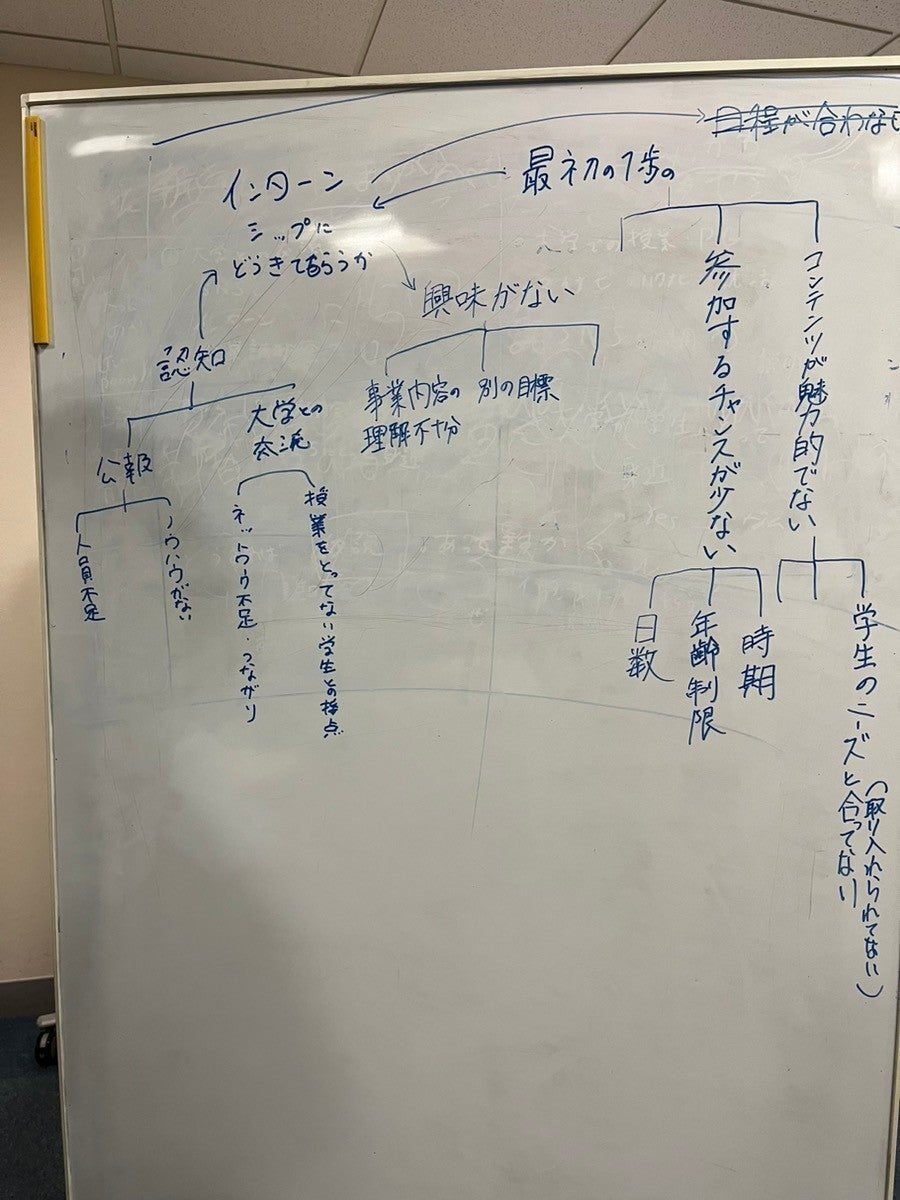 日程が合わな
インターン
シップに
どうきてもらうか
最初の1歩の
興味がない
事業内容の
理解不十分
別の目標
認知
公報
人員不足
ノウハウがない
大学との
交流
ネットワーク不足・つながり
授業をとってない学生との接点
参加するチャンスが少ない
日数
年齢制限
時期
コンテンツが魅力的でない
学生のニーズと合ってない
(取り入れられてない)